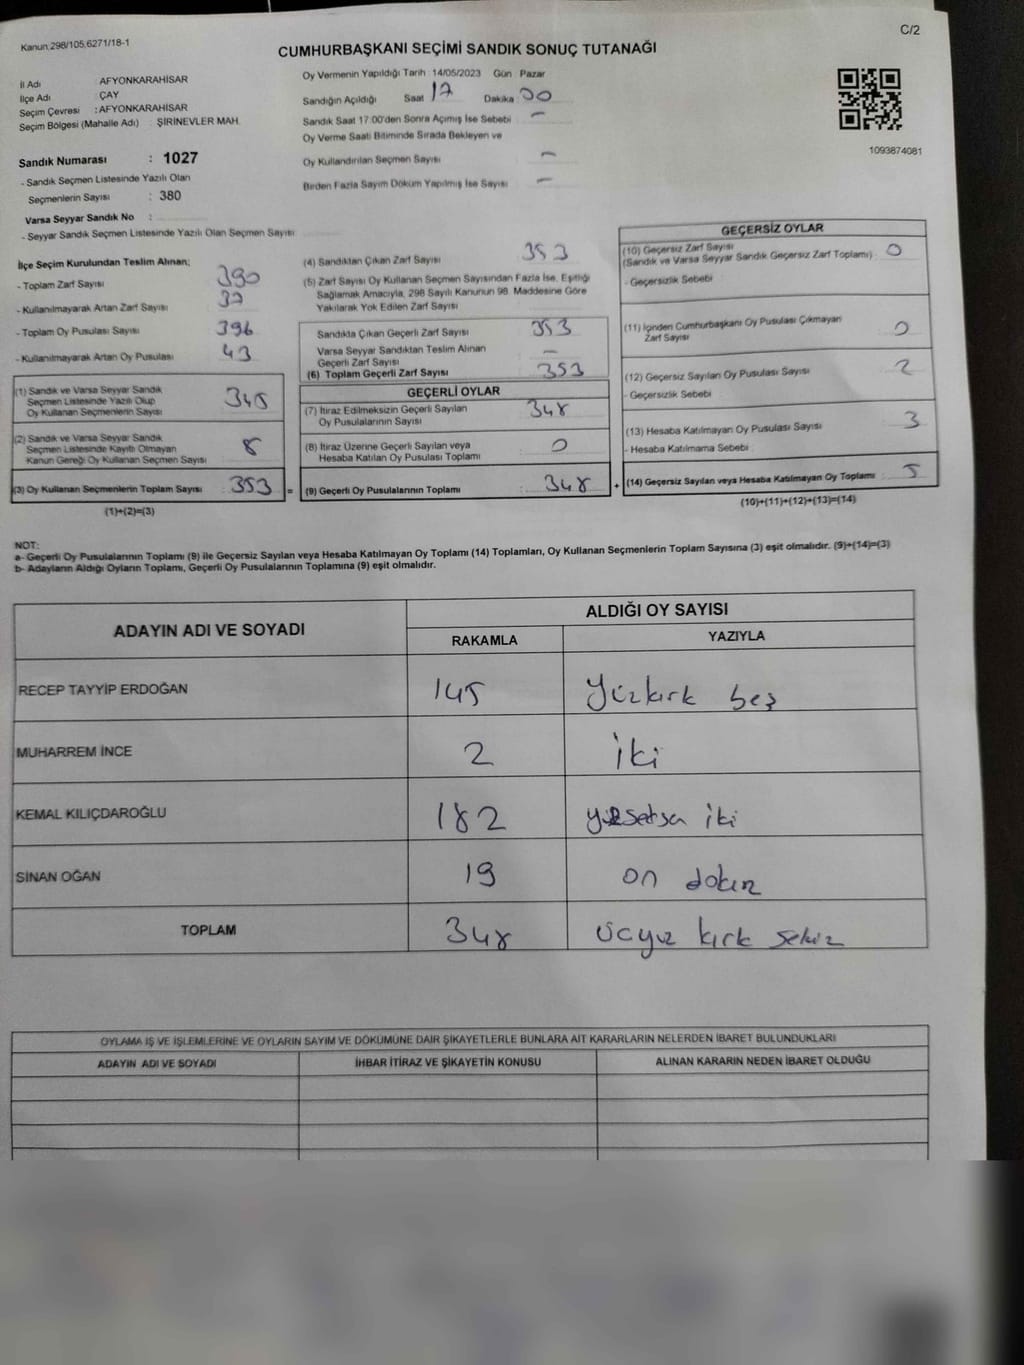 Kanun 298/105,6271/18-1
C/2
CUMHURBAŞKANI SEÇİMİ SANDIK SONUÇ TUTANAĞI
İl Adı : AFYONKARAHİSAR
İlçe Adı : ÇAY
Seçim Çevresi : AFYONKARAHİSAR
Seçim Bölgesi (Mahalle Adı) : ŞİRİNEVLER MAH.
Sandık Numarası : 1027
- Sandık Seçmen Listesinde Yazılı Olan
Seçmenlerin Sayısı : 380
Varsa Seyyar Sandık No :
- Seyyar Sandık Seçmen Listesinde Yazılı Olan Seçmen Sayısı
Oy Vermenin Yapıldığı Tarih : 14/05/2023 Gün Pazar
Sandığın Açıldığı Saat 17 Dakika 00
Sandık Saat 17:00'den Sonra Açımış İse Sebebi —
Oy Verme Saati Bitiminde Sırada Bekleyen ve
Oy Kullandırılan Seçmen Sayısı —
Birden Fazla Sayım Döküm Yapılmış İse Sayısı —
1093874081
İlçe Seçim Kurulundan Teslim Alınan;
- Toplam Zarf Sayısı 390
- Kullanılmayarak Artan Zarf Sayısı 37
- Toplam Oy Pusulası Sayısı 396
- Kullanılmayarak Artan Oy Pusulası 43
(1) Sandık ve Varsa Seyyar Sandık
Seçmen Listesinde Yazılı Olup
Oy Kullanan Seçmenlerin Sayısı 345
(2) Sandık ve Varsa Seyyar Sandık
Seçmen Listesinde Kayıtlı Olmayan
Kanun Gereği Oy Kullanan Seçmen Sayısı 8
(3) Oy Kullanan Seçmenlerin Toplam Sayısı : 353 =
(1)+(2)=(3)
(4) Sandıktan Çıkan Zarf Sayısı 353
(5) Zarf Sayısı Oy Kullanan Seçmen Sayısından Fazla İse, Eşitliği
Sağlamak Amacıyla, 298 Sayılı Kanunun 98. Maddesine Göre
Yakılarak Yok Edilen Zarf Sayısı
Sandıkta Çıkan Geçerli Zarf Sayısı 353
Varsa Seyyar Sandıktan Teslim Alınan
Geçerli Zarf Sayısı —
(6) Toplam Geçerli Zarf Sayısı 353
GEÇERLİ OYLAR
(7) İtiraz Edilmeksizin Geçerli Sayılan
Oy Pusulalarının Sayısı 348
(8) İtiraz Üzerine Geçerli Sayılan veya
Hesaba Katılan Oy Pusulası Toplamı 0
(9) Geçerli Oy Pusulalarının Toplamı : 348 +
GEÇERSİZ OYLAR
(10) Geçersiz Zarf Sayısı
(Sandık ve Varsa Seyyar Sandık Geçersiz Zarf Toplamı) : 0
- Geçersizlik Sebebi
(11) İçinden Cumhurbaşkanı Oy Pusulası Çıkmayan
Zarf Sayısı 0
(12) Geçersiz Sayılan Oy Pusulası Sayısı 2
- Geçersizlik Sebebi
(13) Hesaba Katılmayan Oy Pusulası Sayısı 3
- Hesaba Katılmama Sebebi
(14) Geçersiz Sayılan veya Hesaba Katılmayan Oy Toplamı : 5
(10)+(11)+(12)+(13)=(14)
NOT:
a- Geçerli Oy Pusulalarının Toplamı (9) ile Geçersiz Sayılan veya Hesaba Katılmayan Oy Toplamı (14) Toplamları, Oy Kullanan Seçmenlerin Toplam Sayısına (3) eşit olmalıdır. (9)+(14)=(3)
b- Adayların Aldığı Oyların Toplamı, Geçerli Oy Pusulalarının Toplamına (9) eşit olmalıdır.
ADAYIN ADI VE SOYADI
ALDIĞI OY SAYISI
RAKAMLA YAZIYLA
RECEP TAYYİP ERDOĞAN 145 yüzkırk beş
MUHARREM İNCE 2 iki
KEMAL KILIÇDAROĞLU 182 yüzseksen iki
SİNAN OĞAN 19 on dokuz
TOPLAM 348 üçyüz kırk sekiz
OYLAMA İŞ VE İŞLEMLERİNE VE OYLARIN SAYIM VE DÖKÜMÜNE DAİR ŞİKAYETLERLE BUNLARA AİT KARARLARIN NELERDEN İBARET BULUNDUKLARI
ADAYIN ADI VE SOYADI İHBAR İTİRAZ VE ŞİKAYETİN KONUSU ALINAN KARARIN NEDEN İBARET OLDUĞU